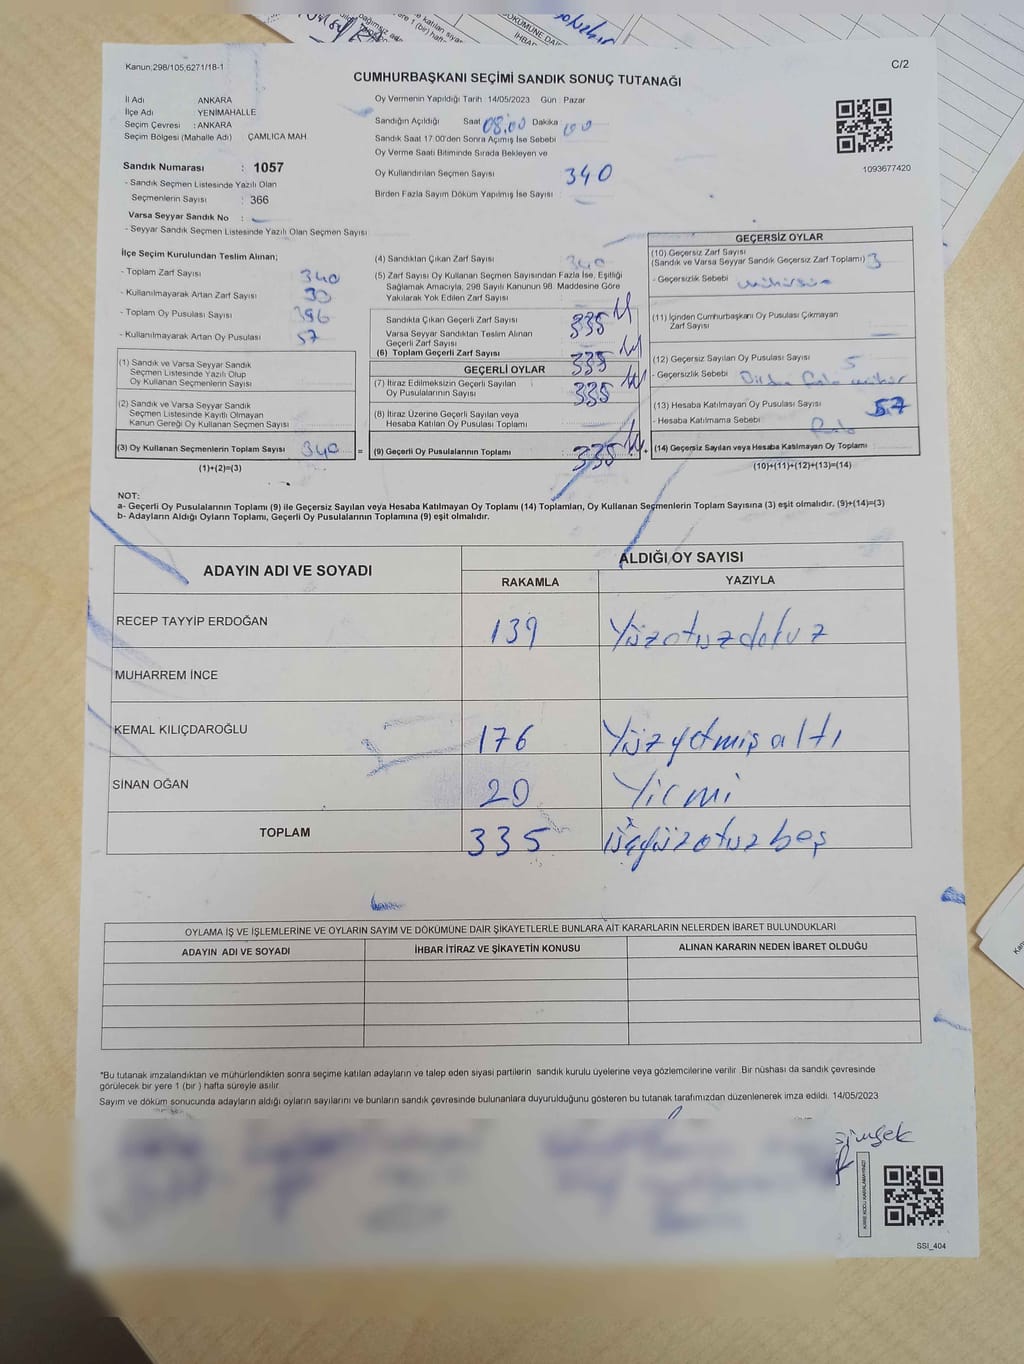 Kanun;298/105;6271/18-1
C/2
CUMHURBAŞKANI SEÇİMİ SANDIK SONUÇ TUTANAĞI
İl Adı ANKARA
İlçe Adı YENİMAHALLE
Seçim Çevresi : ANKARA
Seçim Bölgesi (Mahalle Adı) ÇAMLICA MAH
Sandık Numarası : 1057
- Sandık Seçmen Listesinde Yazılı Olan
Seçmenlerin Sayısı : 366
Varsa Seyyar Sandık No :
- Seyyar Sandık Seçmen Listesinde Yazılı Olan Seçmen Sayısı
Oy Vermenin Yapıldığı Tarih 14/05/2023 Gün : Pazar
Sandığın Açıldığı Saat 08.00 Dakika 00
Sandık Saat 17:00'den Sonra Açımış İse Sebebi
Oy Verme Saati Bitiminde Sırada Bekleyen ve
Oy Kullandırılan Seçmen Sayısı 340
Birden Fazla Sayım Döküm Yapılmış İse Sayısı
1093677420
İlçe Seçim Kurulundan Teslim Alınan;
- Toplam Zarf Sayısı 340
- Kullanılmayarak Artan Zarf Sayısı 30
- Toplam Oy Pusulası Sayısı 396
- Kullanılmayarak Artan Oy Pusulası 57
(1) Sandık ve Varsa Seyyar Sandık
Seçmen Listesinde Yazılı Olup
Oy Kullanan Seçmenlerin Sayısı
(2) Sandık ve Varsa Seyyar Sandık
Seçmen Listesinde Kayıtlı Olmayan
Kanun Gereği Oy Kullanan Seçmen Sayısı
(3) Oy Kullanan Seçmenlerin Toplam Sayısı 340 =
(1)+(2)=(3)
(4) Sandıktan Çıkan Zarf Sayısı 340
(5) Zarf Sayısı Oy Kullanan Seçmen Sayısından Fazla İse, Eşitliği
Sağlamak Amacıyla, 298 Sayılı Kanunun 98. Maddesine Göre
Yakılarak Yok Edilen Zarf Sayısı
Sandıkta Çıkan Geçerli Zarf Sayısı 335
Varsa Seyyar Sandıktan Teslim Alınan
Geçerli Zarf Sayısı
(6) Toplam Geçerli Zarf Sayısı 335
GEÇERLİ OYLAR
(7) İtiraz Edilmeksizin Geçerli Sayılan
Oy Pusulalarının Sayısı 335
(8) İtiraz Üzerine Geçerli Sayılan veya
Hesaba Katılan Oy Pusulası Toplamı
(9) Geçerli Oy Pusulalarının Toplamı 335 +
GEÇERSİZ OYLAR
(10) Geçersiz Zarf Sayısı
(Sandık ve Varsa Seyyar Sandık Geçersiz Zarf Toplamı) 3
- Geçersizlik Sebebi mühürsüz
(11) İçinden Cumhurbaşkanı Oy Pusulası Çıkmayan
Zarf Sayısı
(12) Geçersiz Sayılan Oy Pusulası Sayısı 5
- Geçersizlik Sebebi Birden fazla mühür
(13) Hesaba Katılmayan Oy Pusulası Sayısı 57
- Hesaba Katılmama Sebebi
(14) Geçersiz Sayılan veya Hesaba Katılmayan Oy Toplamı
(10)+(11)+(12)+(13)=(14)
NOT:
a- Geçerli Oy Pusulalarının Toplamı (9) ile Geçersiz Sayılan veya Hesaba Katılmayan Oy Toplamı (14) Toplamları, Oy Kullanan Seçmenlerin Toplam Sayısına (3) eşit olmalıdır. (9)+(14)=(3)
b- Adayların Aldığı Oyların Toplamı, Geçerli Oy Pusulalarının Toplamına (9) eşit olmalıdır.
ADAYIN ADI VE SOYADI
ALDIĞI OY SAYISI
RAKAMLA YAZIYLA
RECEP TAYYİP ERDOĞAN 139 Yüzotuzdokuz
MUHARREM İNCE
KEMAL KILIÇDAROĞLU 176 Yüzyetmiş altı
SİNAN OĞAN 20 Yirmi
TOPLAM 335 üçyüzotuzbeş
OYLAMA İŞ VE İŞLEMLERİNE VE OYLARIN SAYIM VE DÖKÜMÜNE DAİR ŞİKAYETLERLE BUNLARA AİT KARARLARIN NELERDEN İBARET BULUNDUKLARI
ADAYIN ADI VE SOYADI İHBAR İTİRAZ VE ŞİKAYETİN KONUSU ALINAN KARARIN NEDEN İBARET OLDUĞU
*Bu tutanak imzalandıktan ve mühürlendikten sonra seçime katılan adayların ve talep eden siyasi partilerin sandık kurulu üyelerine veya gözlemcilerine verilir .Bir nüshası da sandık çevresinde
görülecek bir yere 1 (bir ) hafta süreyle asılır.
Sayım ve döküm sonucunda adayların aldığı oyların sayılarını ve bunların sandık çevresinde bulunanlara duyurulduğunu gösteren bu tutanak tarafımızdan düzenlenerek imza edildi. 14/05/2023
şimşek
SSI_404